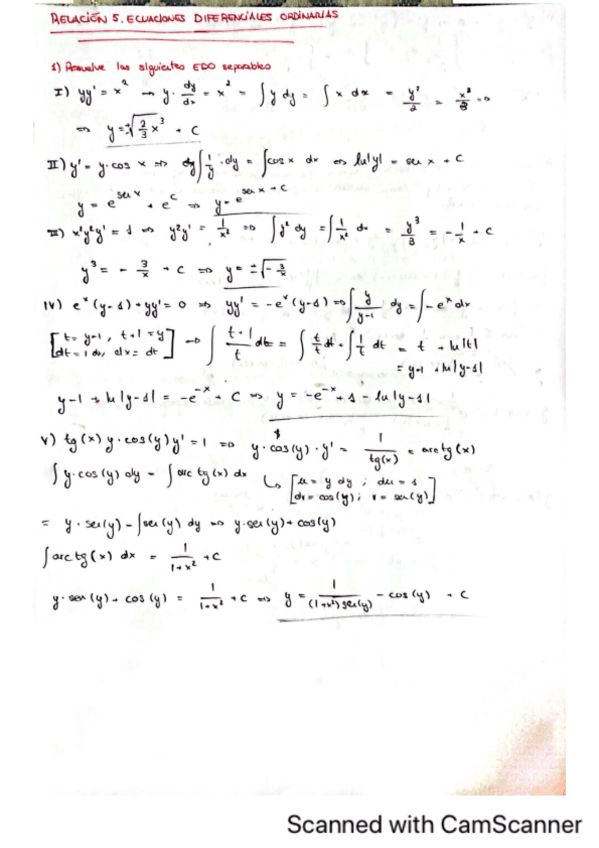 RELACIÓN 5. ECUACIONES DIFERENCIALES ORDINARIAS
1) Resuelve las siguientes EDO separables
I) yy' = x² → y · dy/dx = x² = ∫ y dy = ∫ x dx = y²/2 = x³/3 ⇒
⇒ y = ±√(2/3 x³) + C
II) y' = y · cos x ⇒ ∫ 1/y · dy = ∫ cos x dx ⇔ ln|y| = sen x + C
y = e^(sen x) + e^c ⇒ y = e^(sen x + C)
III) x²y²y' = 1 ⇔ y²y' = 1/x² ⇒ ∫ y² dy = ∫ 1/x² dx = y³/3 = - 1/x + C
y³ = - 3/x + C ⇒ y = ±√(- 3/x)
IV) eˣ (y-1) + yy' = 0 ⇒ yy' = -eˣ (y-1) ⇒ ∫ y/(y-1) dy = ∫ -eˣ dx
[t = y-1, t+1 = y
dt = 1 dy, dx = dt] → ∫ (t+1)/t dt = ∫ t/t dt + ∫ 1/t dt = t + ln|t|
= y-1 + ln|y-1|
y-1 + ln|y-1| = -e⁻ˣ + C ⇒ y = -e⁻ˣ + 1 - ln|y-1|
V) tg(x) y · cos(y) y' = 1 ⇒ y · cos(y) · y' = 1/tg(x) = arctg(x)
∫ y · cos(y) dy = ∫ arc tg(x) dx ↳ [u = y dy ; du = 1
dv = cos(y) ; v = sen(y)]
= y · sen(y) - ∫ sen(y) dy ⇒ y · sen(y) + cos(y)
∫ arctg(x) dx = 1/(1+x²) + C
y · sen(y) + cos(y) = 1/(1+x²) + C ⇒ y = 1/((1+x²) sen(y)) - cos(y) + C
Scanned with CamScanner